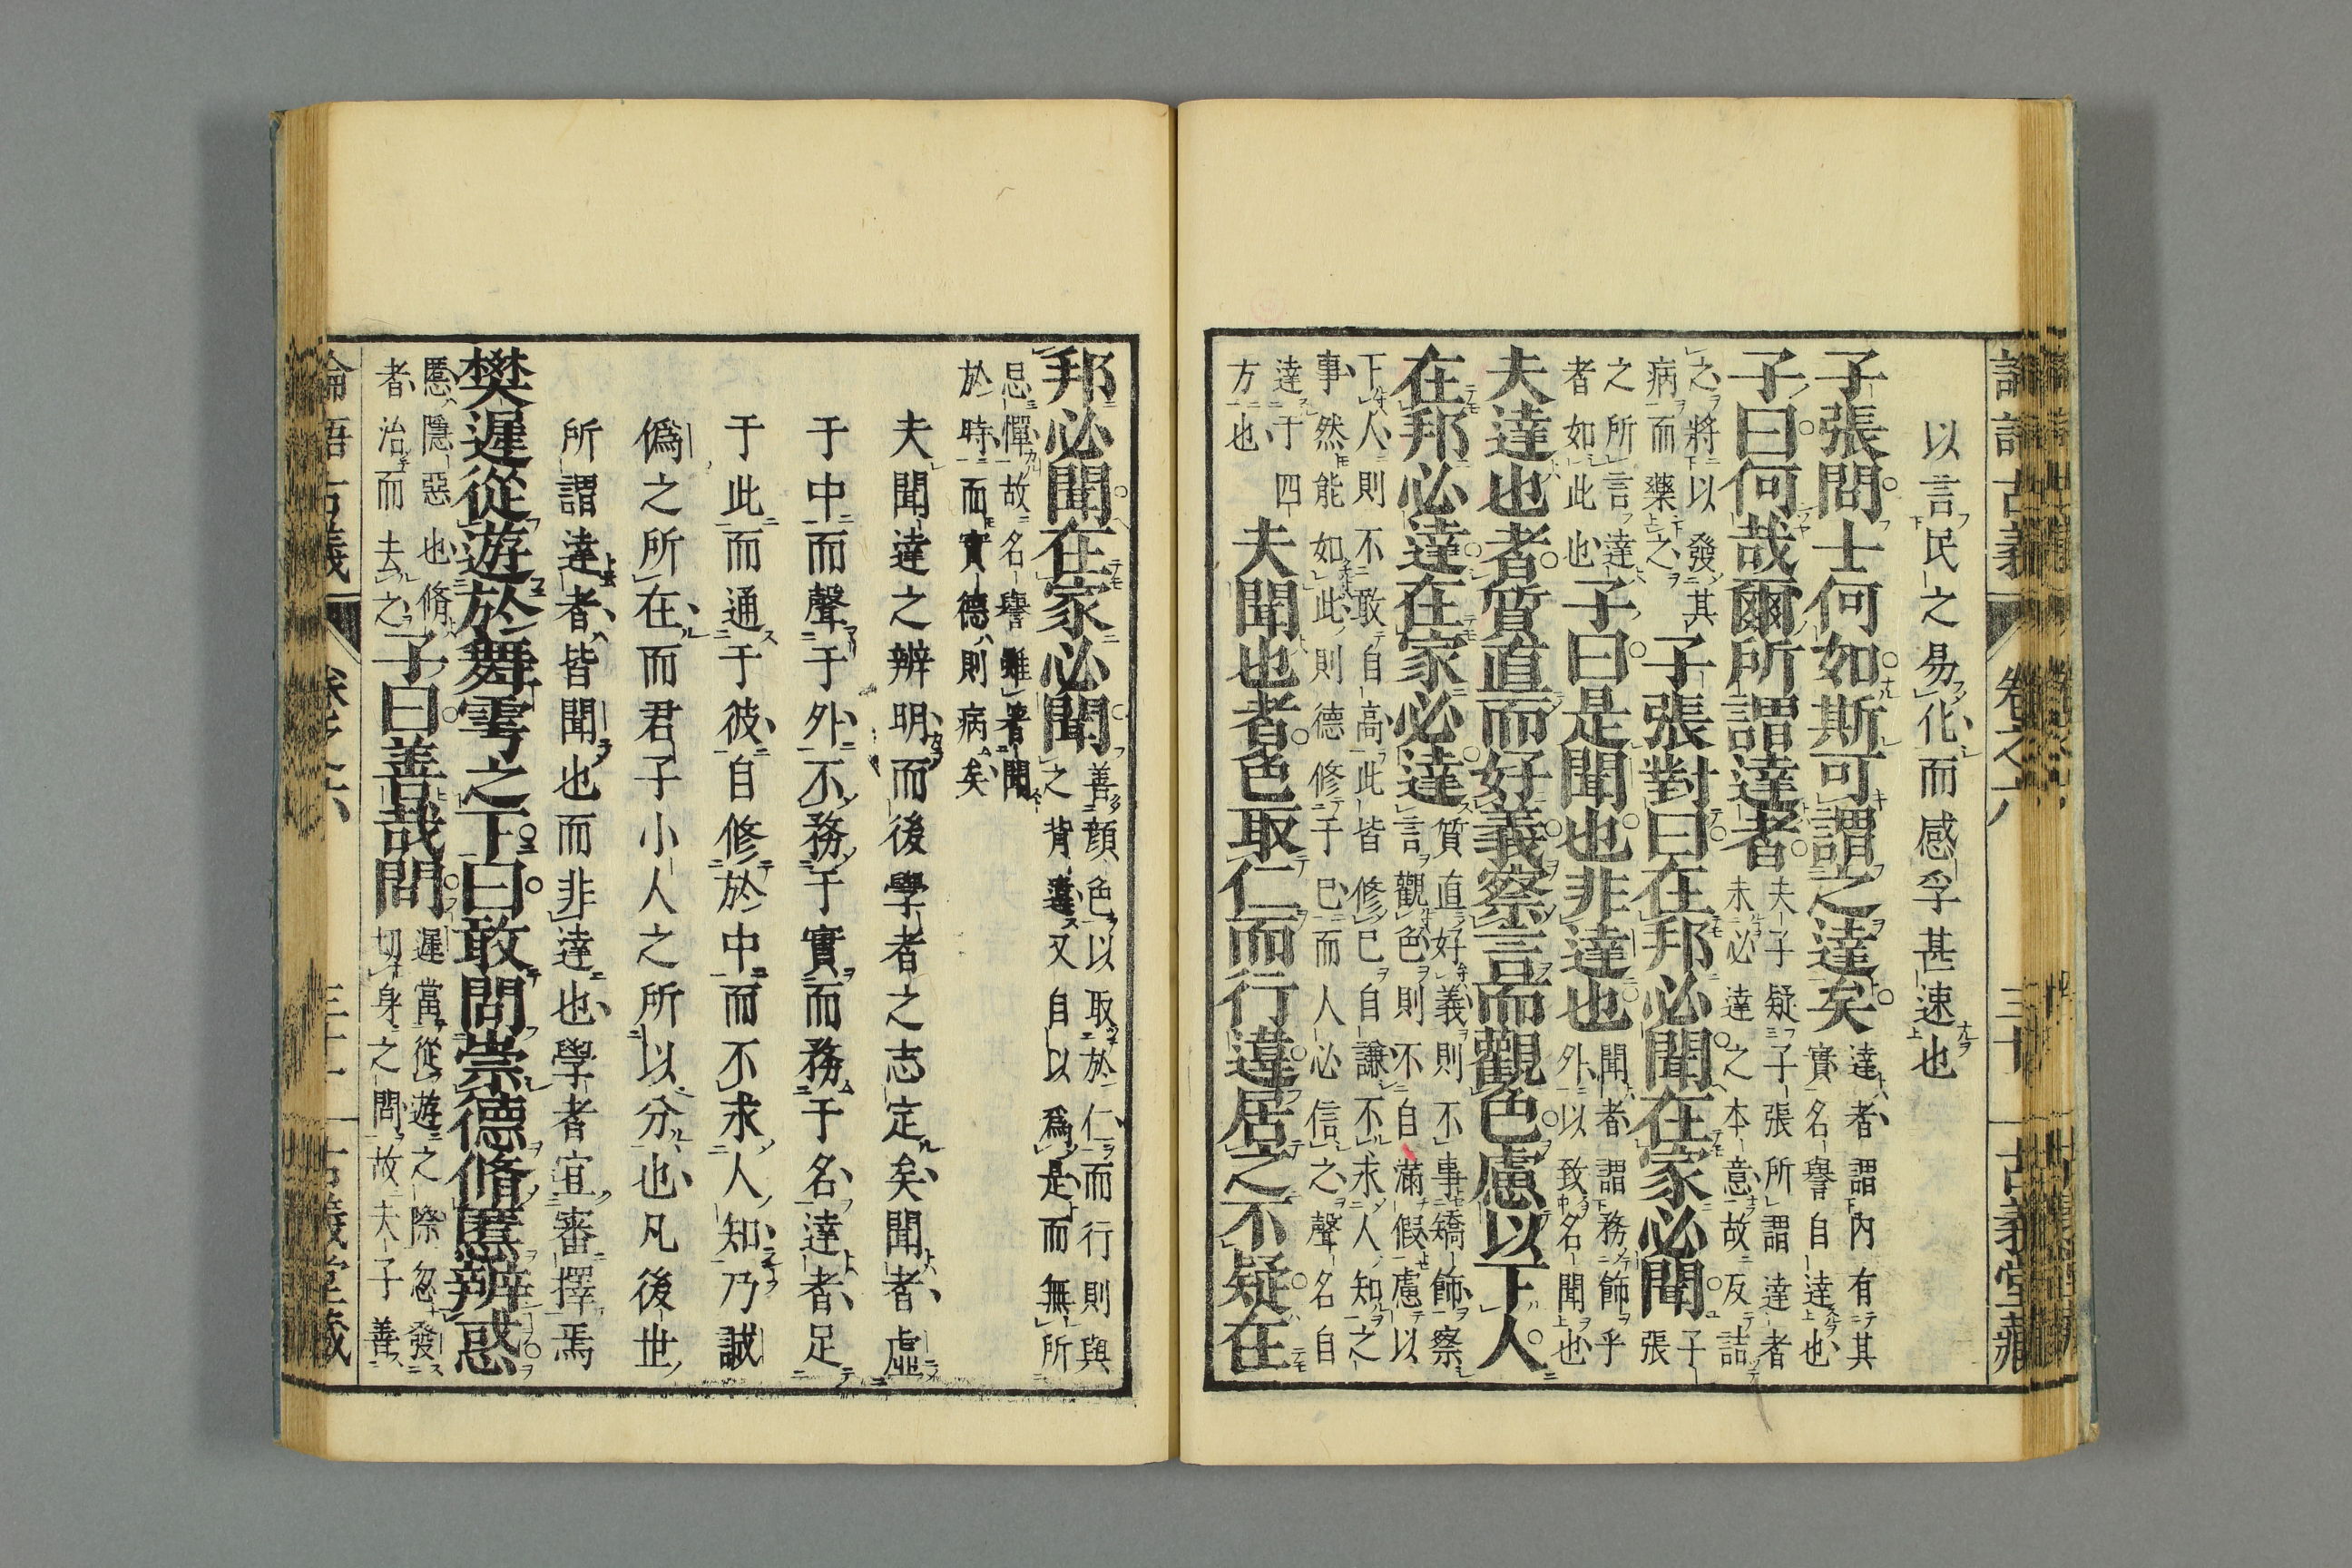 以言民之易化而感孚甚速也
子張問士何如斯可謂之達矣 達者謂內有其實名譽自達也
子曰何哉爾所謂達者 夫子疑子張所謂達者未必達之本意故反詰
之將以發其病而藥之 子張對曰在邦必聞在家必聞 子張
之所言達者如此也 子曰是聞也非達也 聞者謂務飾乎外以致名聞也
夫達也者質直而好義察言而觀色慮以下人
在邦必達在家必達 質直好義則不事矯飾察言觀色則不自滿假慮以
下人則不敢自高此皆修已自謙不求人知之事然能如此則德修于已而人必信之聲名自
達于四方也 夫聞也者色取仁而行違居之不疑在
邦必聞在家必聞 善顏色以取於仁而行則與之背違又自以爲是而無所
忌憚故名譽雖著聞於時而實德則病矣
夫聞達之辨明而後學者之志定矣聞者虛
于中而聲于外不務于實而務于名達者足
于此而通于彼自修於中而不求人知乃誠
僞之所在而君子小人之所以分也凡後世
所謂達者皆聞也而非達也學者宜審擇焉
樊遲從遊於舞雩之下曰敢問崇德脩慝辨惑
慝隱惡也脩者治而去之 子曰善哉問 遲當從遊之際忽發切身之問故夫子善
論語古義 卷之六 三十一 古義堂藏
論語古義 卷之六 三十 古義堂藏